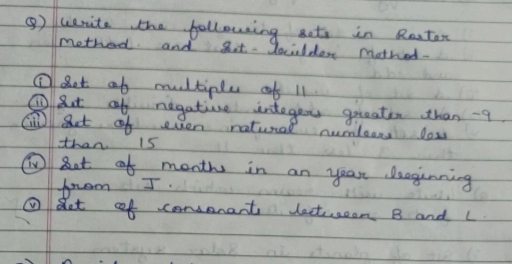 Q) Write the following sets in Roster
Method and Set-builder Method-
(i) Set of multiples of 11.
(ii) Set of negative integers greater than -9.
(iii) Set of even natural numbers less
than 15
(iv) Set of months in an year beginning
from J.
(v) Set of consonants between B and L.